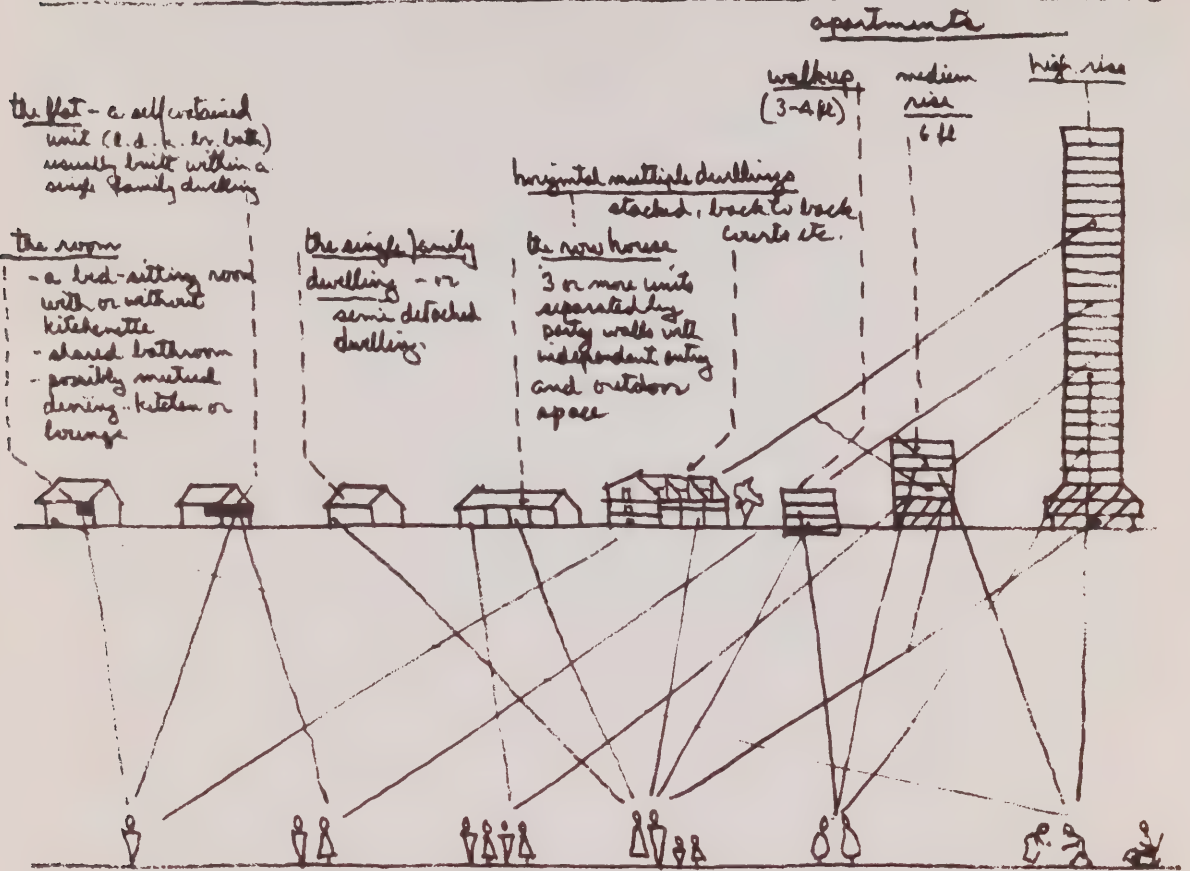 apartments
walkup
(3-4 fl)
medium
rise
6 fl
high rise
the flat - a self contained
unit (l.d.k. br. bath)
usually built within a
single family dwelling
horizontal multiple dwellings
stacked, back to back
courts etc.
the room
- a bed-sitting room
with or without
kitchenette
- shared bathroom
- possibly mutual
dining-kitchen or
lounge
the single family
dwelling - or
semi detached
dwelling.
the row house
3 or more units
separated by
party walls with
independent entry
and outdoor
space